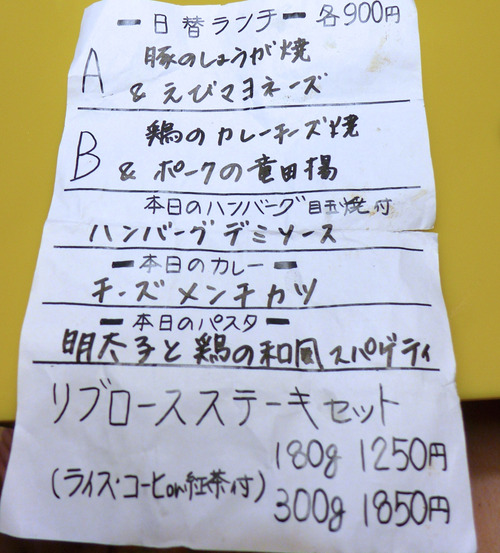 ー日替ランチー 各900円
A 豚のしょうが焼
& えびマヨネーズ
B 鶏のカレーチーズ焼
& ポークの竜田揚
本日のハンバーグ 目玉焼付
ハンバーグデミソース
ー本日のカレーー
チーズメンチカツ
ー本日のパスター
明太子と鶏の和風スパゲティ
リブロースステーキセット
180g 1250円
(ライス・コーヒor紅茶付) 300g 1850円